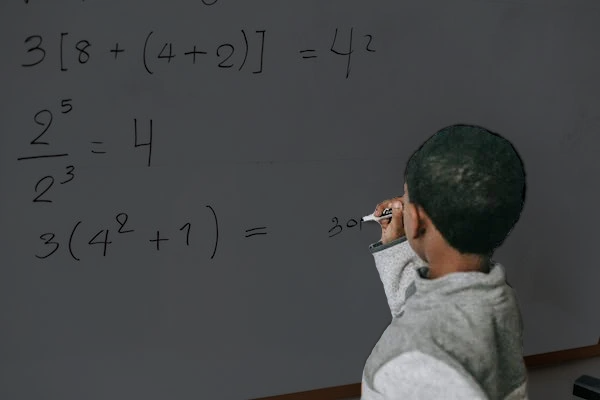 3[8 + (4 + 2)] = 42
2⁵/2³ = 4
3(4² + 1) =